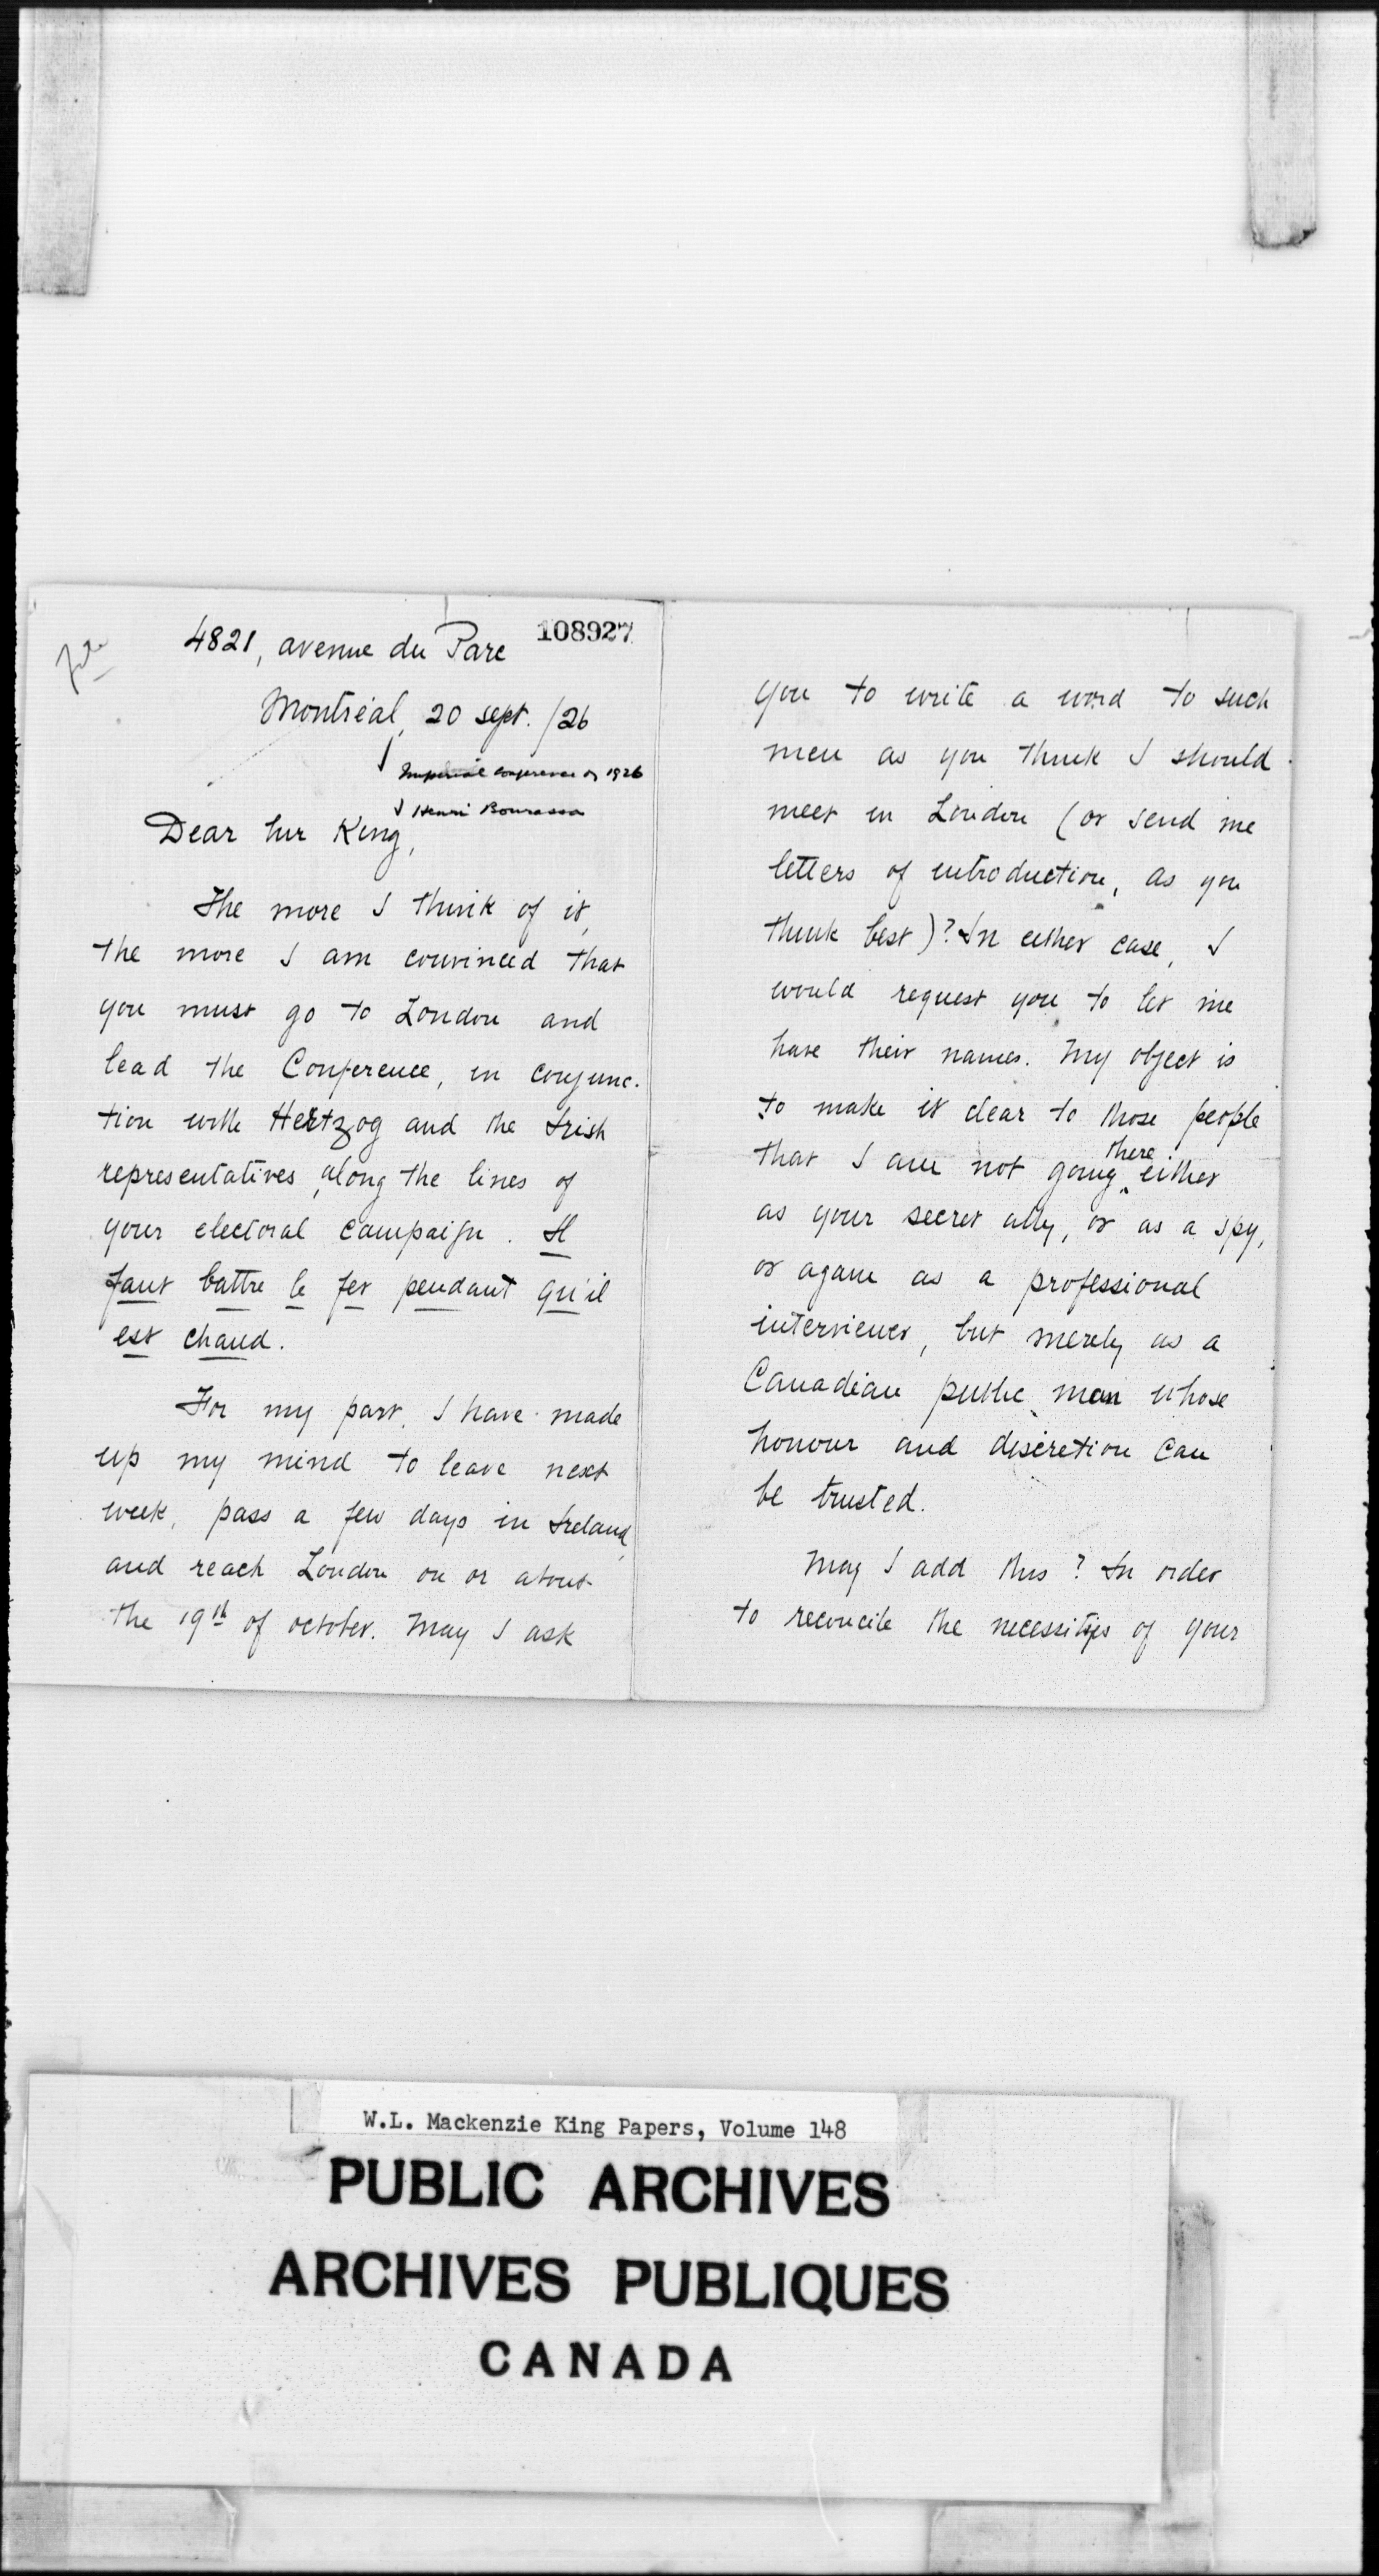 File
108927
4821, avenue du Parc
Montréal, 20 sept. /26
Imperial Conference of 1926
Henri Bourassa
Dear Mr King,
The more I think of it,
the more I am convinced that
you must go to London and
lead the Conference, in conjunc-
tion with Hertzog and the Irish
representatives, along the lines of
your electoral campaign. Il
faut battre le fer pendant qu'il
est chaud.
For my part, I have made
up my mind to leave next
week, pass a few days in Ireland,
and reach London on or about
the 19th of october. May I ask
you to write a word to such
men as you think I should
meet in London (or send me
letters of introduction, as you
think best)? In either case, I
would request you to let me
have their names. My object is
to make it clear to those people
that I am not going there either
as your secret ally, or as a spy,
or again as a professional
interviewer, but merely as a
Canadian public man whose
honour and discretion can
be trusted.
May I add this? In order
to reconcile the necessities of your
W.L. Mackenzie King Papers, Volume 148
PUBLIC ARCHIVES
ARCHIVES PUBLIQUES
CANADA